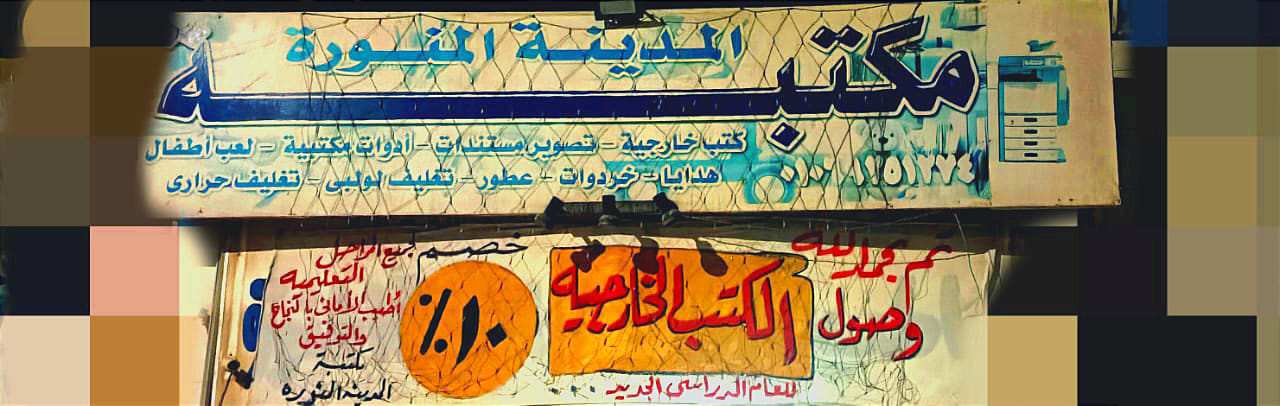 مكتبة
المدينة المنورة
كتب خارجية - تصوير مستندات - أدوات مكتبية - لعب أطفال
هدايا - خردوات - عطور - تغليف لولبى - تغليف حرارى
٠١٠٠ ١٢٥١٧٧٤
تم بحمد الله
وصول
الكتب الخارجية
للعام الدراسى الجديد...
خصم
١٠٪
لجميع المراحل
التعليمية
أطيب الأمانى بالنجاح
والتوفيق
مكتبة
المدينة المنورة